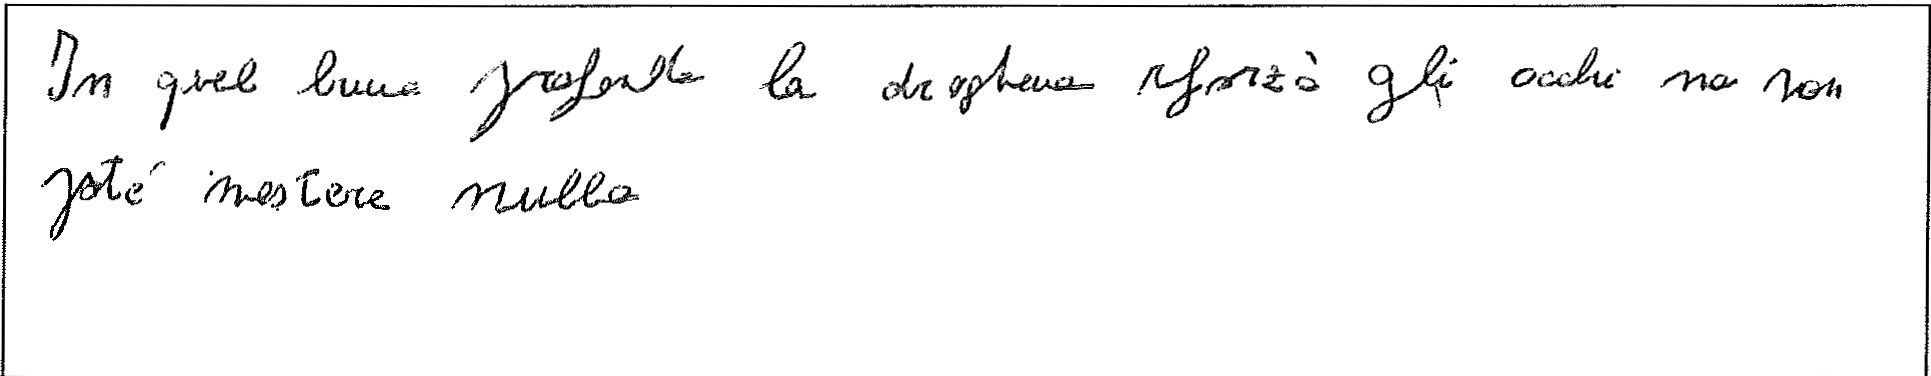 In quel buua profondo la draghena sforzò gli occhi ma non
poté mestere nulla